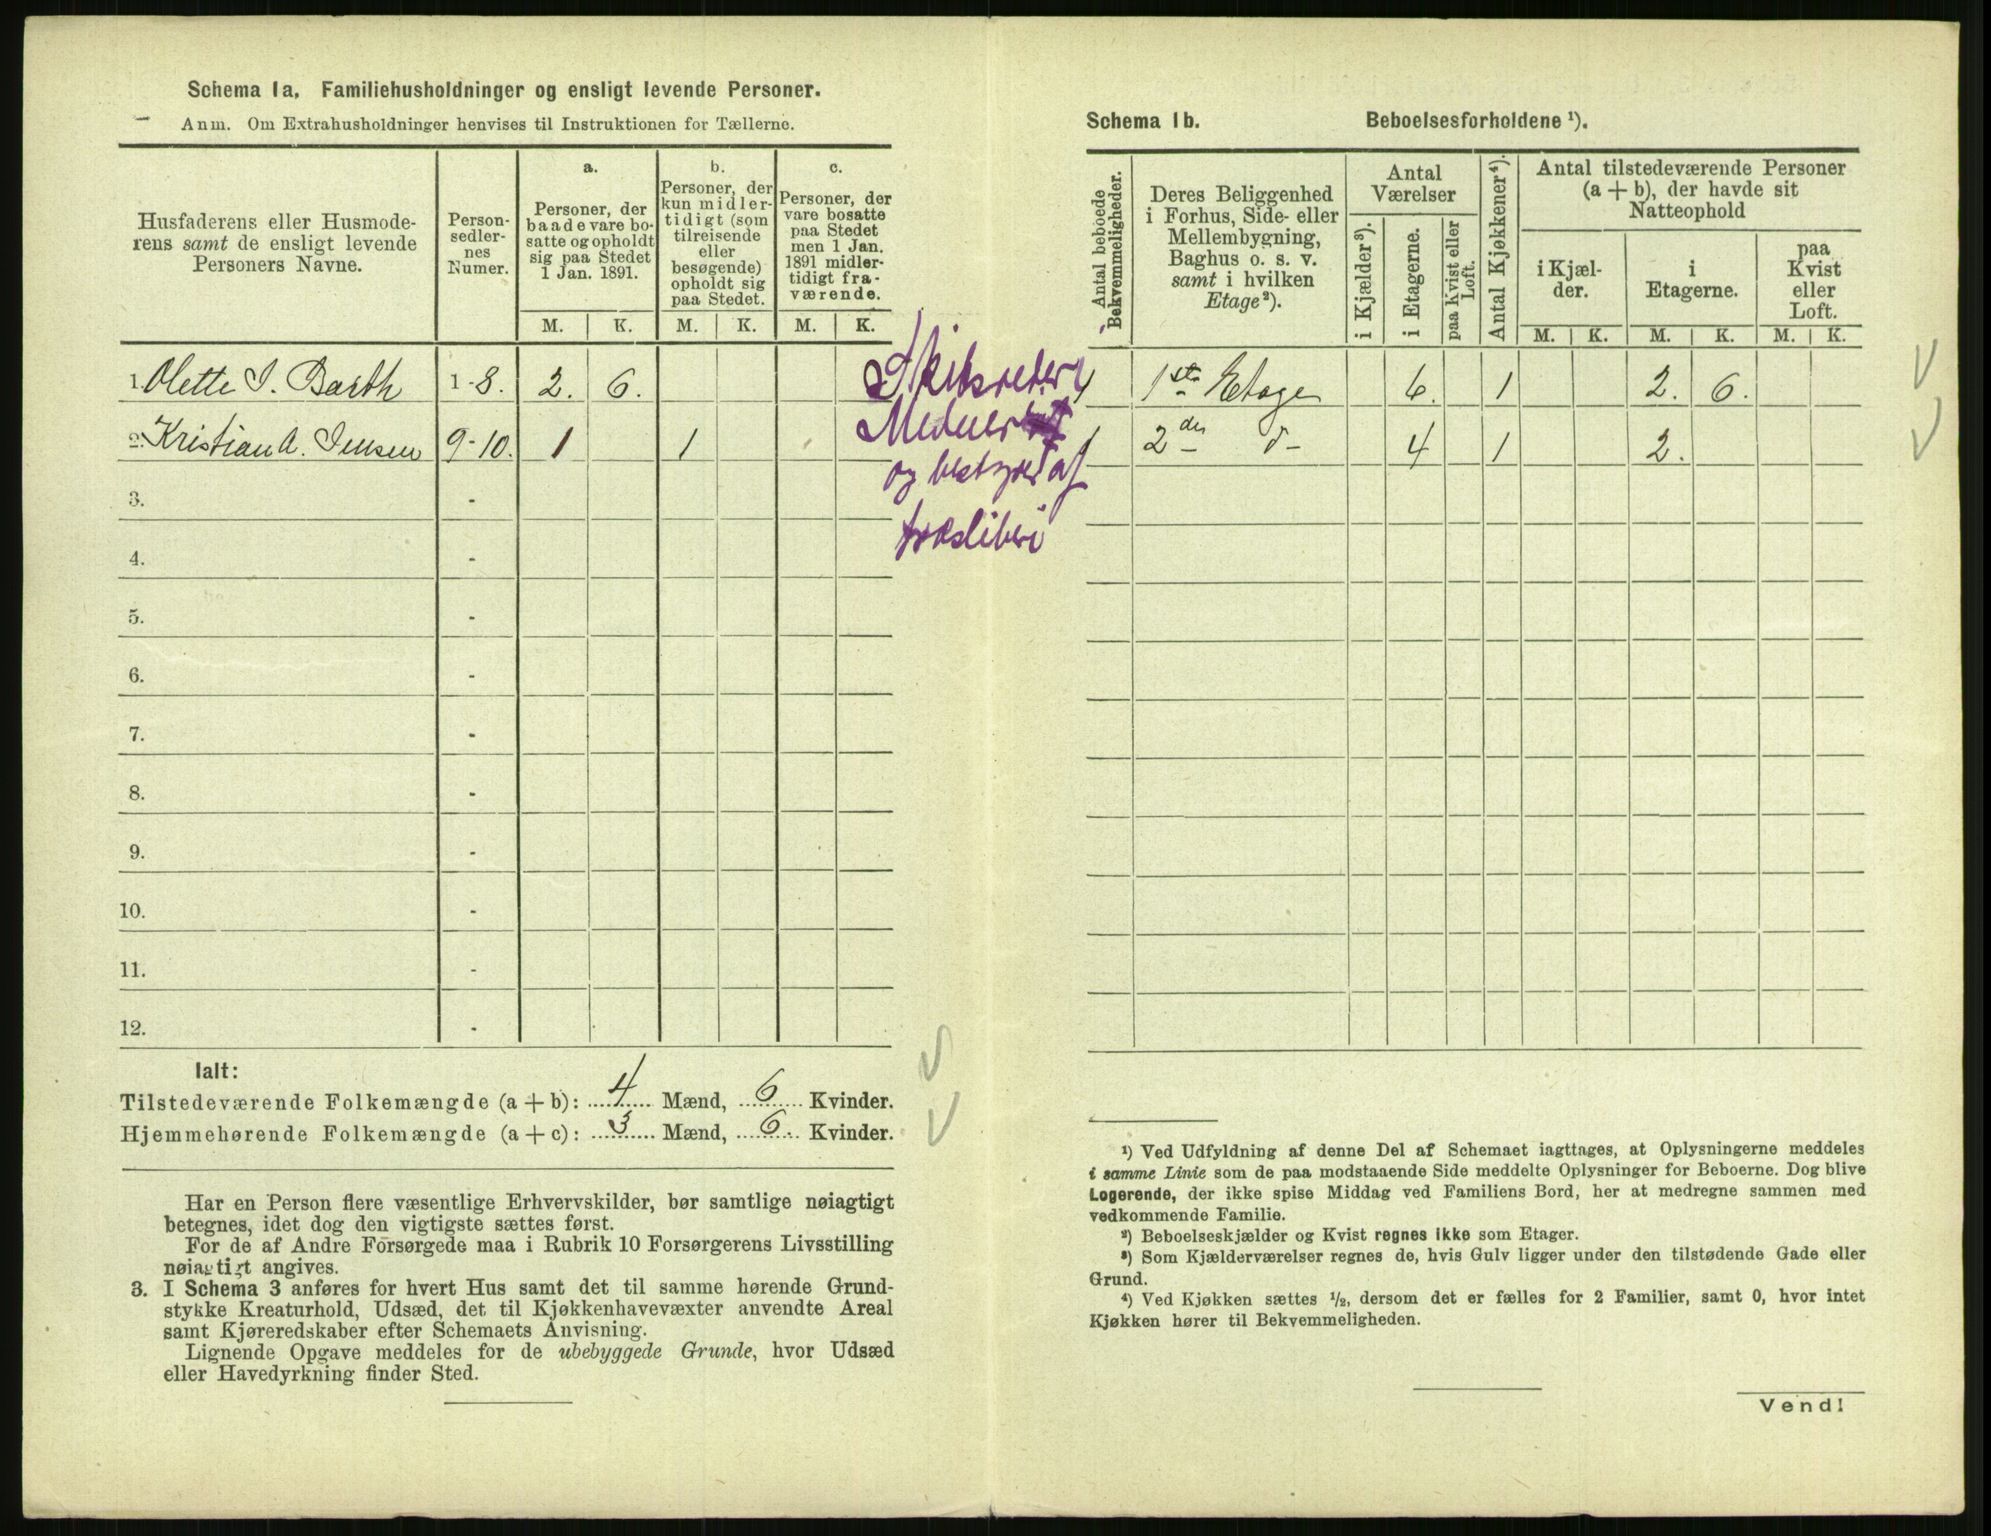 Schema 1a. Familiehusholdninger og ensligt levende Personer.
Anm. Om Extrahusholdninger henvises til Instruktionen for Tællerne.
Husfaderens eller Husmode-
rens samt de ensligt levende
Personers Navne.
Person-
sedler-
nes
Numer.
a.
Personer, der
baade vare bo-
satte og opholdt
sig paa Stedet
1 Jan. 1891.
b.
Personer, der
kun midler-
tidigt (som
tilreisende
eller
besøgende)
opholdt sig
paa Stedet.
c.
Personer, der
vare bosatte
paa Stedet
men 1 Jan.
1891 midler-
tidigt fra-
værende.
M. K. M. K. M. K.
1. Olette I. Barth 1-8. 2. 6.
2. Kristian A. Jensen 9-10. 1 1
3. -
4. -
5. -
6. -
7. -
8. -
9. -
10. -
11. -
12. -
Ialt:
Tilstedeværende Folkemængde (a + b): 4 Mænd, 6 Kvinder.
Hjemmehørende Folkemængde (a + c): 3 Mænd, 6. Kvinder.
Har en Person flere væsentlige Erhvervskilder, bør samtlige nøiagtigt
betegnes, idet dog den vigtigste sættes først.
For de af Andre Forsørgede maa i Rubrik 10 Forsørgerens Livsstilling
nøiagtigt angives.
3. I Schema 3 anføres for hvert Hus samt det til samme hørende Grund-
stykke Kreaturhold, Udsæd, det til Kjøkkenhavevæxter anvendte Areal
samt Kjøreredskaber efter Schemaets Anvisning.
Lignende Opgave meddeles for de ubebyggede Grunde, hvor Udsæd
eller Havedyrkning finder Sted.
og af
Schema 1b. Beboelsesforholdene ¹).
Antal beboede
Bekvemmeligheder.
Deres Beliggenhed
i Forhus, Side- eller
Mellembygning,
Baghus o. s. v.
samt i hvilken
Etage²).
Antal
Værelser
i Kjælder³).
i Etagerne.
paa Kvist eller
Loft.
Antal Kjøkkener⁴).
Antal tilstedeværende Personer
(a + b), der havde sit
Natteophold
i Kjæl-
der.
i
Etagerne.
paa
Kvist
eller
Loft.
M. K. M. K. M. K.
1 1ste Etage 6. 1 2. 6.
1 2den d- 4 1 2.
¹) Ved Udfyldning af denne Del af Schemaet iagttages, at Oplysningerne meddeles
i samme Linie som de paa modstaaende Side meddelte Oplysninger for Beboerne. Dog blive
Logerende, der ikke spise Middag ved Familiens Bord, her at medregne sammen med
vedkommende Familie.
²) Beboelseskjælder og Kvist regnes ikke som Etager.
³) Som Kjælderværelser regnes de, hvis Gulv ligger under den tilstødende Gade eller
Grund.
⁴) Ved Kjøkken sættes ½, dersom det er fælles for 2 Familier, samt 0, hvor intet
Kjøkken hører til Bekvemmeligheden.
Vend!